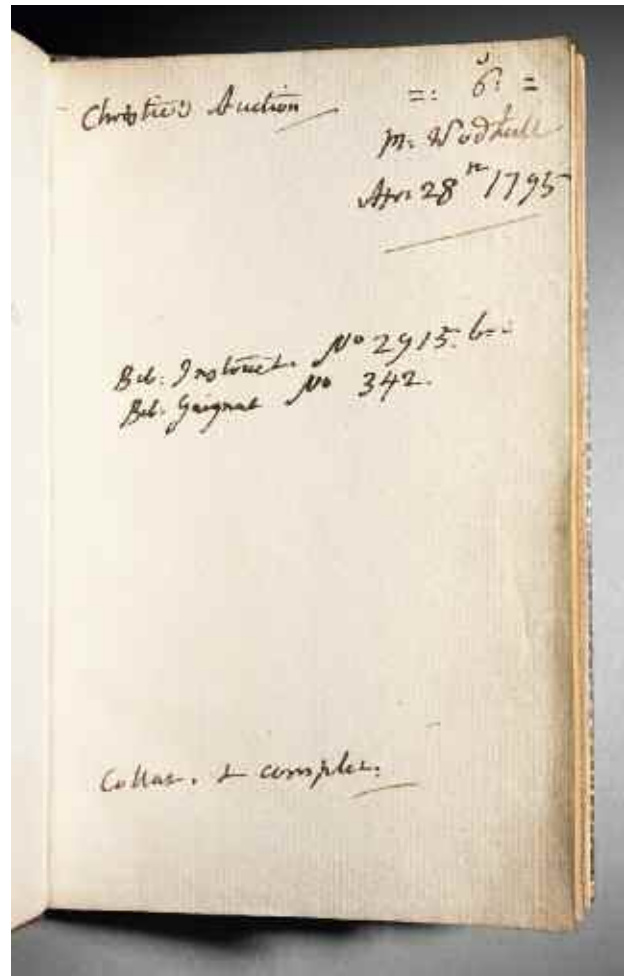 Christie's Auction =: 6: =
M: Wodhull
Apr: 28th 1795
Bib: Instruct. No 2915. b=:
Bib. Gaignat No 342.
Collat. & complet: